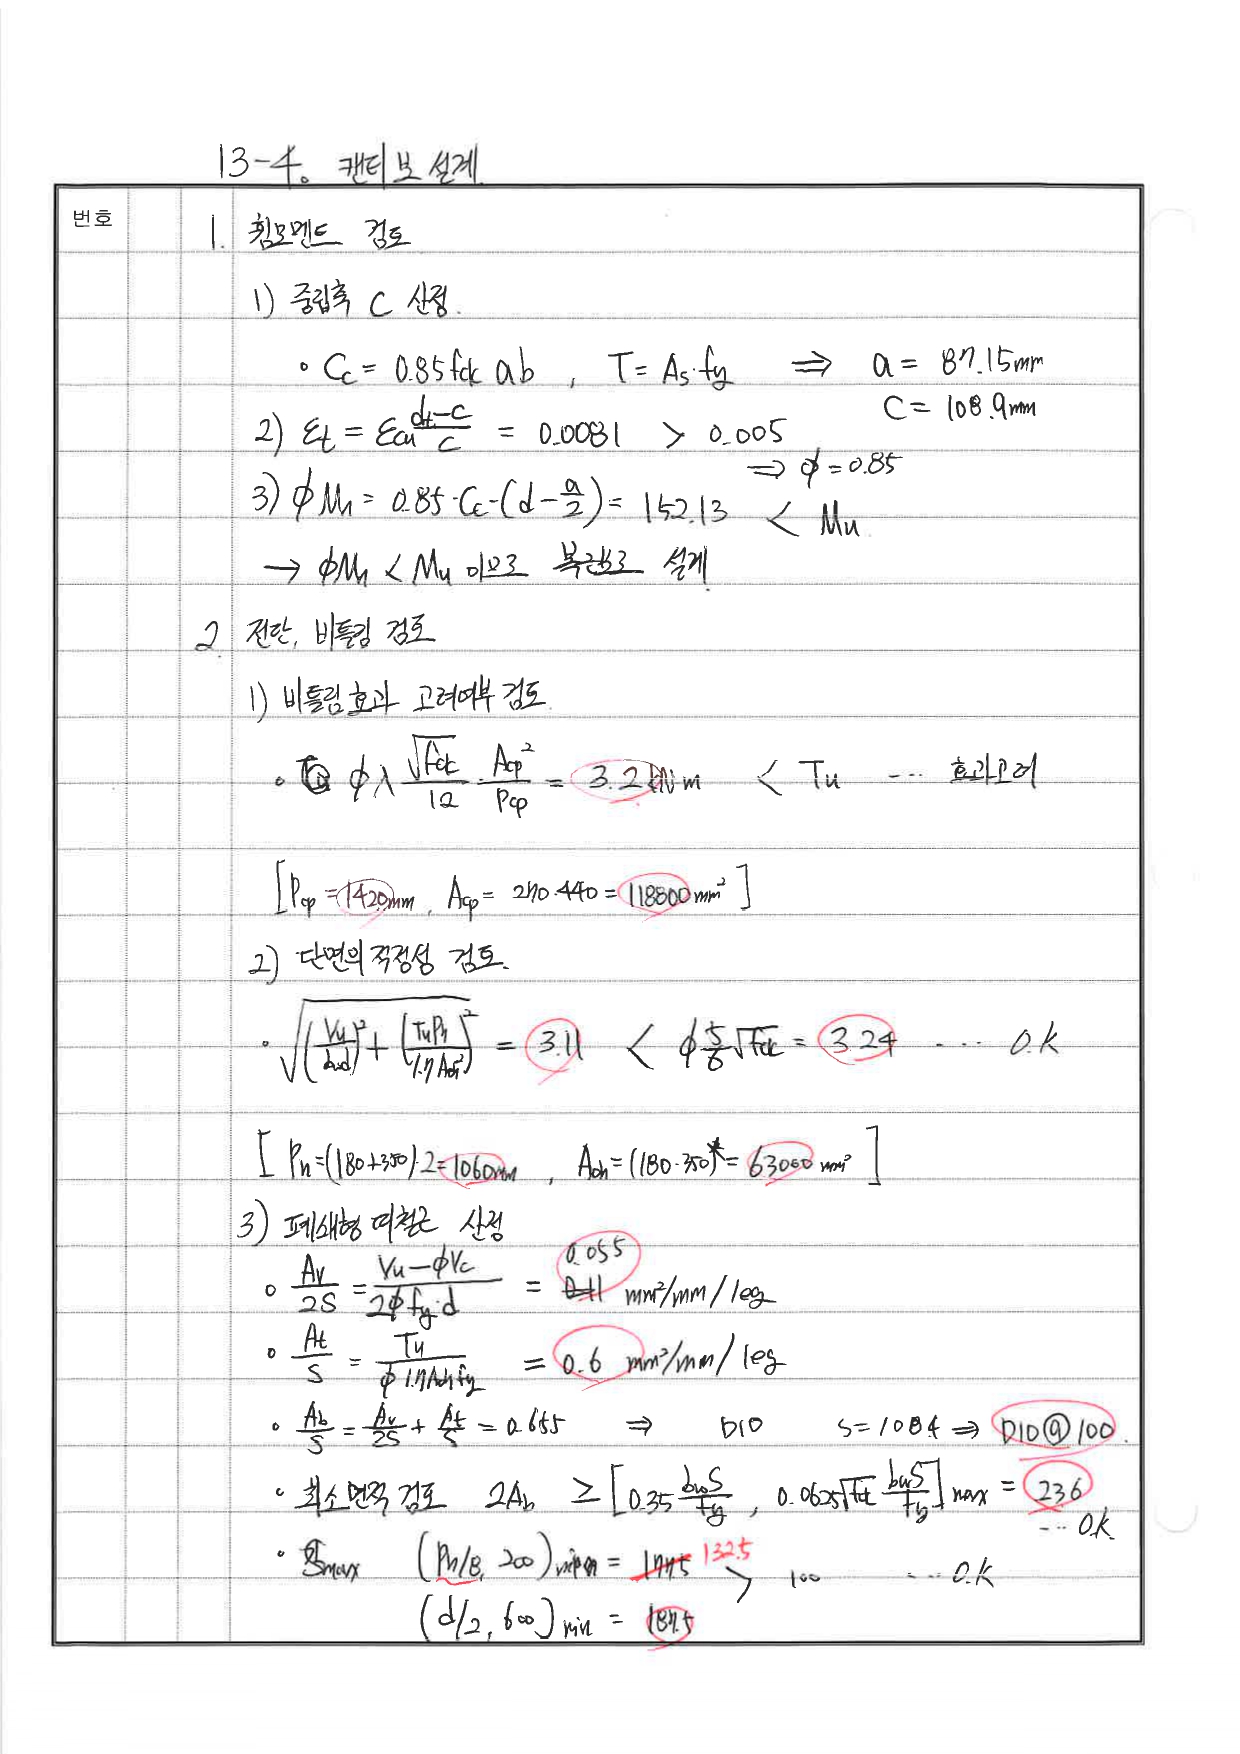 13-4. 캔티보 설계
번호
1. 휨모멘트 검토
1) 중립축 C 산정.
• Cc = 0.85fck ab , T = As·fy ⇒ a = 87.15mm
C = 108.9mm
2) εt = εcu (dt-c)/c = 0.0081 > 0.005
⇒ φ = 0.85
3) φMn = 0.85·Cc·(d - a/2) = 152.13 < Mu
→ φMn < Mu 이므로 복근보로 설계
2. 전단, 비틀림 검토
1) 비틀림효과 고려여부 검토.
• φλ √fck/12 · Acp²/Pcp = 3.2 kN·m < Tu ··· 효과고려
[Pcp = 1420mm, Acp = 270·440 = 118800mm²]
2) 단면의 적정성 검토.
• √((Vu/bwd)² + (TuPh/1.7Aoh²)²) = 3.11 < φ 5/6 √fck = 3.24 ···· O.K
[Ph = (180+350)·2 = 1060mm , Aoh = (180·350) = 63000 mm²]
3) 폐쇄형 띠철근 산정
0.055
• Av/2S = (Vu - φVc)/(2φfy·d) = 0.11 mm²/mm/leg
• At/S = Tu/(φ1.7Aohfy) = 0.6 mm²/mm/leg
• Ab/S = Av/2S + At/S = 0.655 ⇒ D10 S = 108.4 ⇒ D10@100.
• 최소면적 검토 2Ab ≥ [0.35 bwS/fy , 0.0625√fck bwS/fy] max = 23.6
··· O.K.
• Smax (Ph/8, 200)min = 177.5 132.5 > 100 ··· O.K
(d/2, 600)min = 187.5